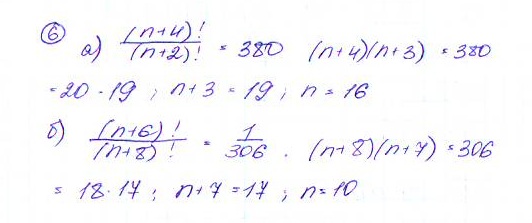 6 а) (n+4)! / (n+2)! = 380 (n+4)(n+3) = 380
= 20 · 19 ; n+3 = 19 ; n = 16
б) (n+6)! / (n+8)! = 1/306 . (n+8)(n+7) = 306
= 18·17 ; n+7 = 17 ; n = 10